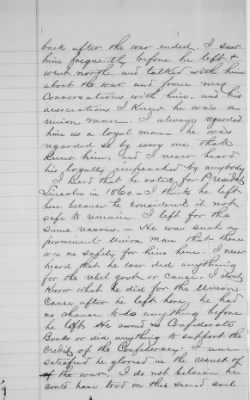 back after the war ended. I saw
him frequently before he left &
went north, and talked with him
about the war and from my
conversations with him, and his
associations I knew he was a
union man. I always regarded
him as a loyal man he was
regarded so by every one that
knew him, and I never heard
his loyalty questioned by anybody
I heard that he voted for President
Lincoln in 1860 - I think he left
here because he considered it not
safe to remain. I left for the
same reasons. - He was such a
prominent Union man that there
was no safety for him here. I never
heard that he ever did anything
for the rebel govt or cause. I dont
know what he did for the Union
Cause after he left here, he had
no chance to do anything before
he left. He owned no Confederate
Bonds or did anything to support the
Credit of the Confederacy. I am
satisfied he gloried in the result of
the war. I do not believe he
could have trod on this sacred soil